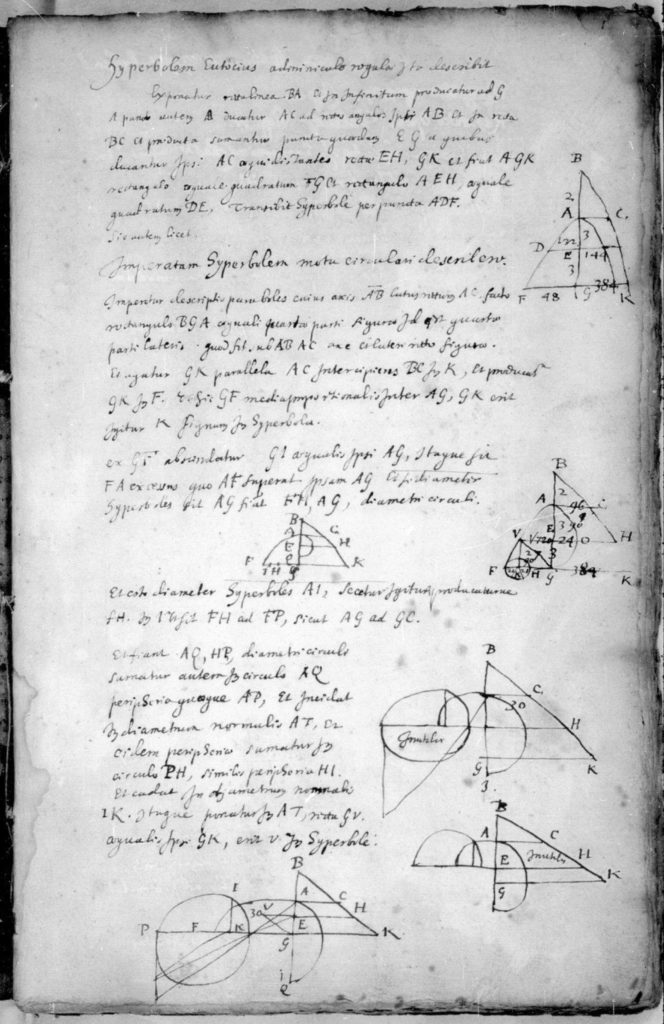 Hyperbolem Eutocius adminiculo regula Ita describit
Exponatur rectalinea BA Et In Infinitum producatur ad G
A puncto autem ducatur AC ad rectos angulos Ipsi AB Et In recta
BC Et producta sumantur puncta quaedam E G a quibus
ducantur Ipsi AC aequidistantes recta EH, GK et fiat AGK
rectangulo aequale quadratum FG Et rectangulo AEH, aequale
quadratum DE, Transibit Hyperbole per puncta ADF.
Sic autem licet.
Imperatam Hyperbolem motu circulari describere.
Imperetur descriptis parabolis cuius axis AB latus rectum AC, facto
rectangulo BGA aequali quartae parti figurae Id est quartae
parti lateris quod fit, ab AB AC axe et latere recto figurae.
Et agatur GK parallela AC Intercipiens BC In K, Et producat
GK In F. Et sit GF media proportionalis Inter AG, GK erit
Igitur K signum In Hyperbola.
ex GF abscindatur GI aequalis Ipsi AG, Itaque fit
FA excessus quo AF superat Ipsam AG Et si diameter
Hyperboles fit AG fiat FH, AG, diametri circuli.
Et esto diameter Hyperboles AI, secetur Igitur producaturve
FH. In P Et fit FH ad FP, sicut AG ad GC.
Et fiant AQ, HP, diametri circuli
sumatur autem In circulo AQ
peripheria quaeque AP, Et Incidat
In diametrum normalis AT, Et
eidem peripheria sumatur In
circulo PH, similis peripheria HI.
Et cadat In diametrum normalis
IK. Itaque ponatur In AT, recta GV.
aequalis Ipsi GK, erit V In Hyperbole.
B
2
A C
3
D 122 E 144
3
F 48 G 384 K
B
2
A 96 C
E 3 90
V 120 24 O H
3
F H G 384 K
B
A C
E H
F IH G K
B
C
30
Inutilis
H
G K
3.
B
A C
E Inutilis H
K
G
B
I V A C
30 H
P F K E
G K
Q